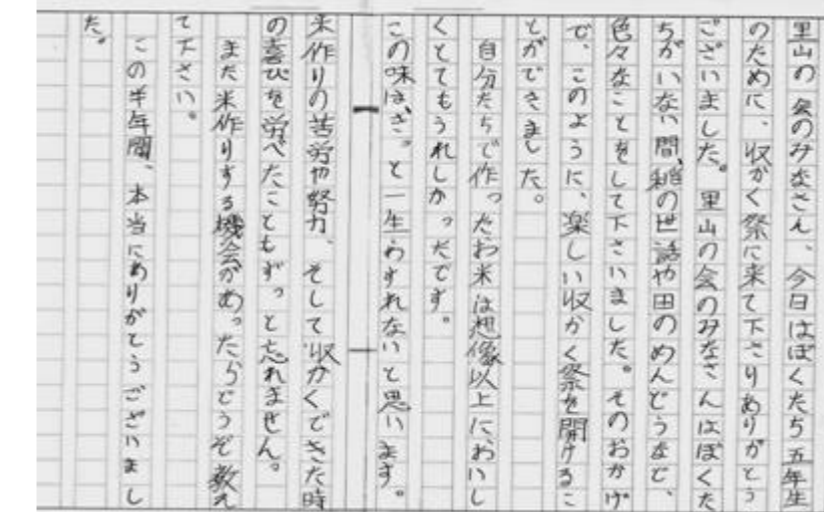 里山の会のみなさん、今日はぼくたち五年生
のために、収かく祭に来て下さりありがとう
ございました。里山の会のみなさんはぼくた
ちがいない間、稲の世話や田のめんどうなど、
色々なことをして下さいました。そのおかげ
で、このように、楽しい収かく祭を開けるこ
とができました。
自分たちで作ったお米は想像以上においし
くとてもうれしかったです。
この味は、きっと一生わすれないと思います。
米作りの苦労や努力、そして収かくできた時
の喜びを学べたこともずっと忘れません。
また米作りする機会があったらどうぞ教え
て下さい。
この半年間、本当にありがとうございまし
た。